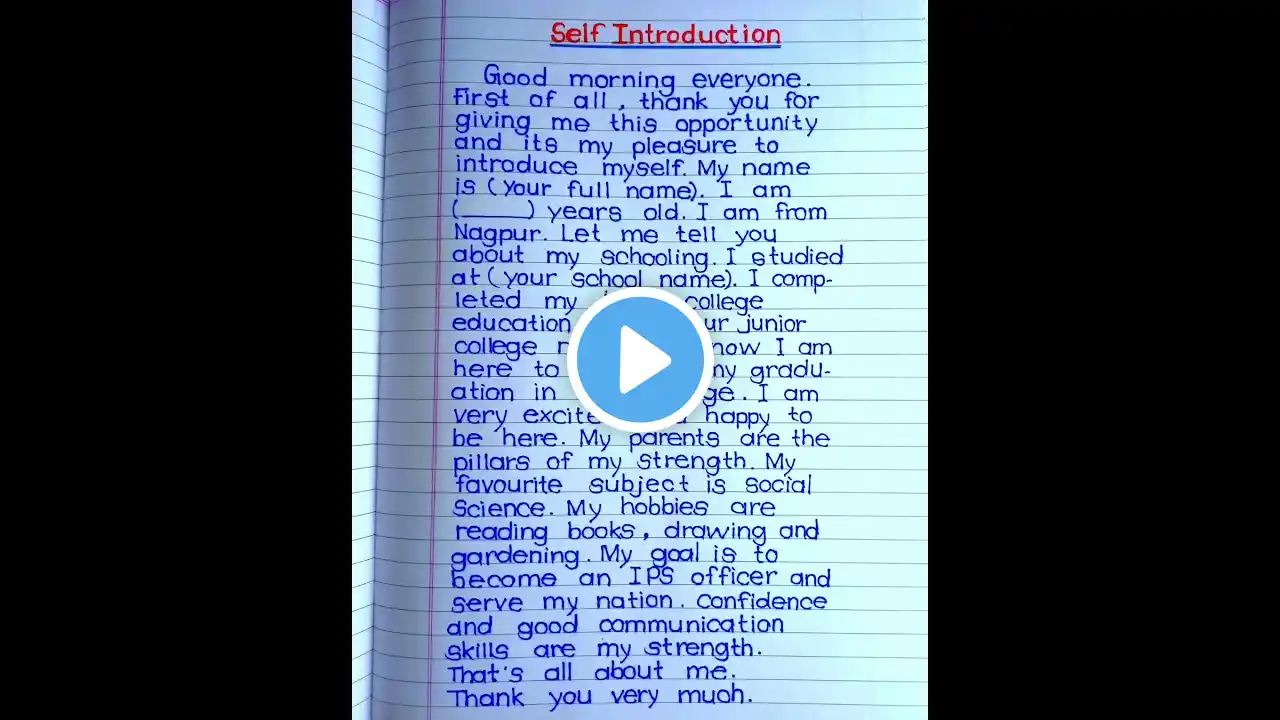 Self Introduction
Good morning everyone.
First of all, thank you for
giving me this opportunity
and its my pleasure to
introduce myself. My name
is (your full name). I am
(_____) years old. I am from
Nagpur. Let me tell you
about my schooling. I studied
at (your school name). I comp-
leted my college
education junior
college now I am
here to my gradu-
ation in I am
very happy to
be here. My parents are the
pillars of my strength. My
favourite subject is social
science. My hobbies are
reading books, drawing and
gardening. My goal is to
become an IPS officer and
serve my nation. Confidence
and good communication
skills are my strength.
That's all about me.
Thank you very much.